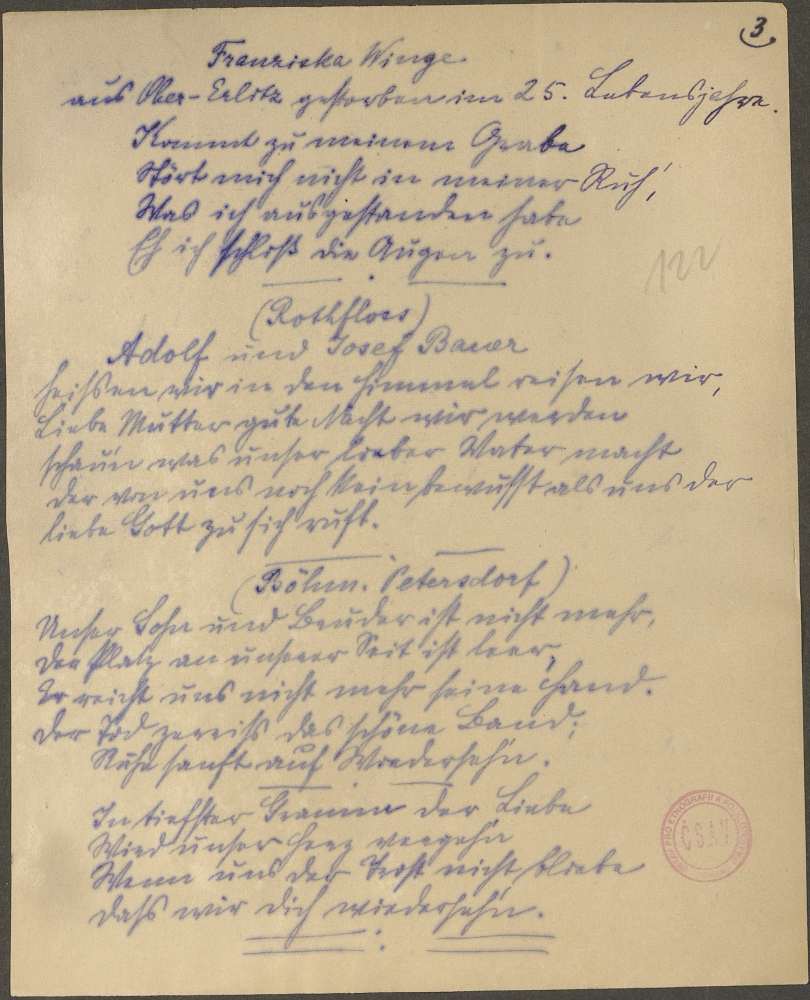 3
Franziska Winge
aus Ober-Erlitz gestorben im 25. Lebensjahre.
Kommt zu meinem Grabe
Stört mich nicht in meiner Ruh',
Was ich ausgestanden habe
Eh ich schloß die Augen zu.
122
(Rothfloss)
Adolf und Josef Bauer
heissen wir in den Himmel reisen wir,
Liebe Mutter gute Nacht wir werden
schaun was unser lieber Vater macht
der von uns noch kein bewusst als uns der
liebe Gott zu sich ruft.
(Böhm. Petersdorf)
Unser Sohn und Bruder ist nicht mehr,
der Platz an unserer Seit ist leer,
Er reicht uns nicht mehr seine Hand.
der Tod zerriss das schöne Band;
Ruhe sanft auf Wiedersehn.
In tiefster Gramm der Liebe
Wird unser Herz vergehn
Wenn uns der Trost nicht bliebe
dass wir dich wiedersehn.
ČSAV